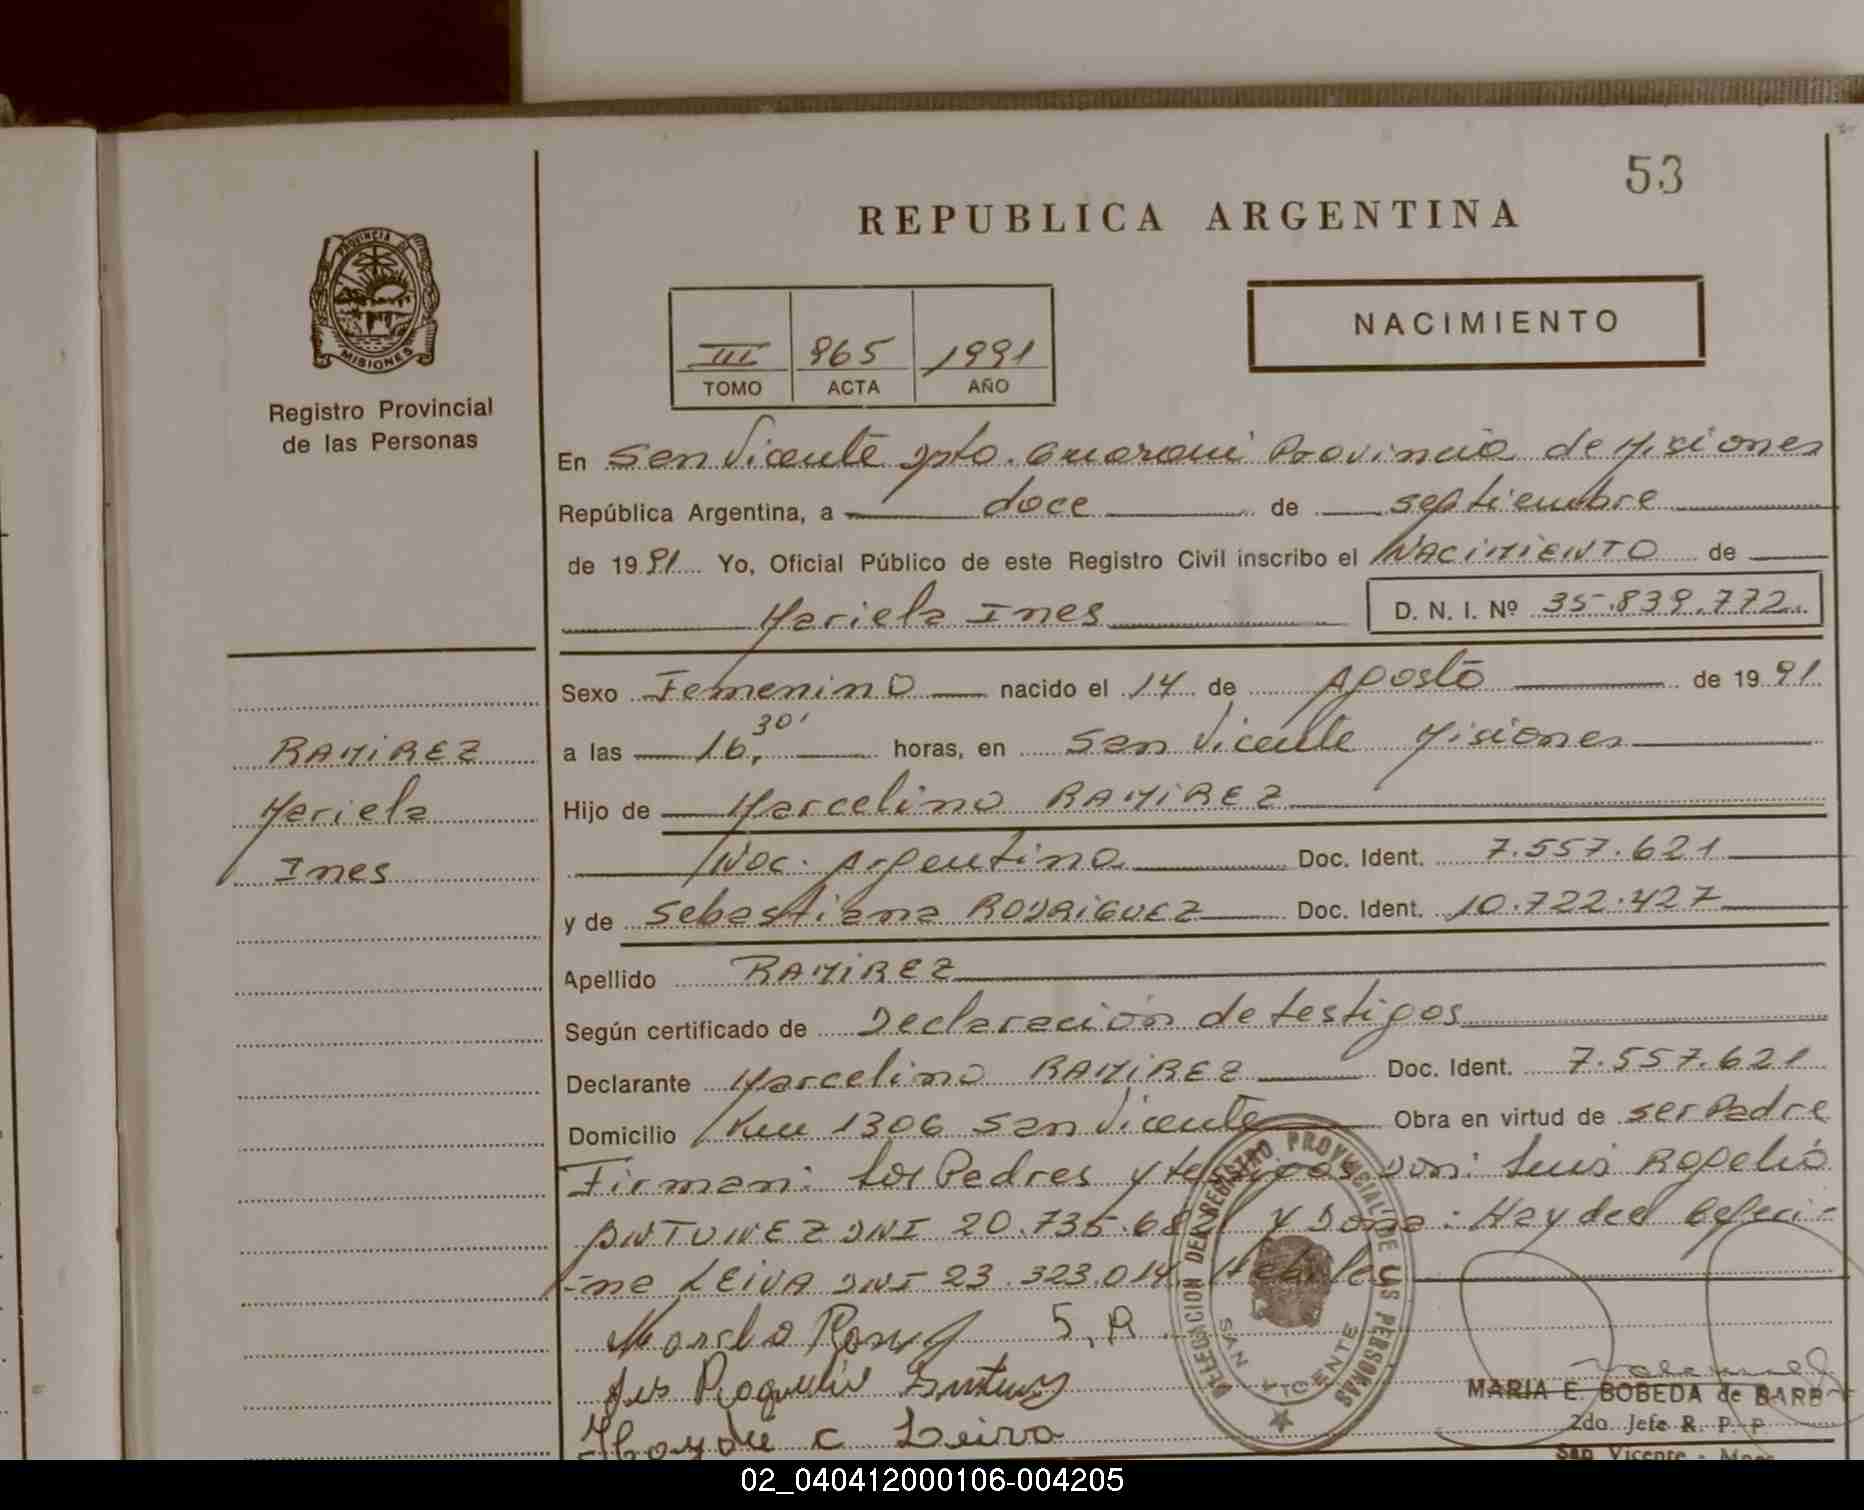 53
REPUBLICA ARGENTINA
PROVINCIA DE
MISIONES
Registro Provincial
de las Personas
NACIMIENTO
III 865 1991
TOMO ACTA AÑO
En San Vicente Dpto. Guarani Provincia de Misiones
República Argentina, a doce de septiembre
de 1991 Yo, Oficial Público de este Registro Civil inscribo el NACIMIENTO de
Mariela Ines D. N. I. Nº 35.839.772.
Sexo Femenino nacido el 14 de Agosto de 1991
RAMIREZ
Mariela
Ines
a las 16,30' horas, en San Vicente Misiones
Hijo de Marcelino RAMIREZ
Nac. Argentina Doc. Ident. 7.557.621
y de Sebastiana RODRIGUEZ Doc. Ident. 10.722.427
Apellido RAMIREZ
Según certificado de Declaración de testigos
Declarante Marcelino RAMIREZ Doc. Ident. 7.557.621
Domicilio Km 1306 San Vicente Obra en virtud de ser Padre
Firman: Los Padres y testigos Don: Luis Rogelio
ANTUNEZ DNI 20.735.68 y Dona: Haydee Ceferi-
-na LEIVA DNI 23.323.014. Habiles
S, R.
Haydée C Leiva
DELEGACION DEL REGISTRO PROVINCIAL DE LAS PERSONAS
SAN VICENTE
MARIA E. BOBEDA de BARB
2do. Jefe R. P. P.
San Vicente - Mnes.
02_040412000106-004205